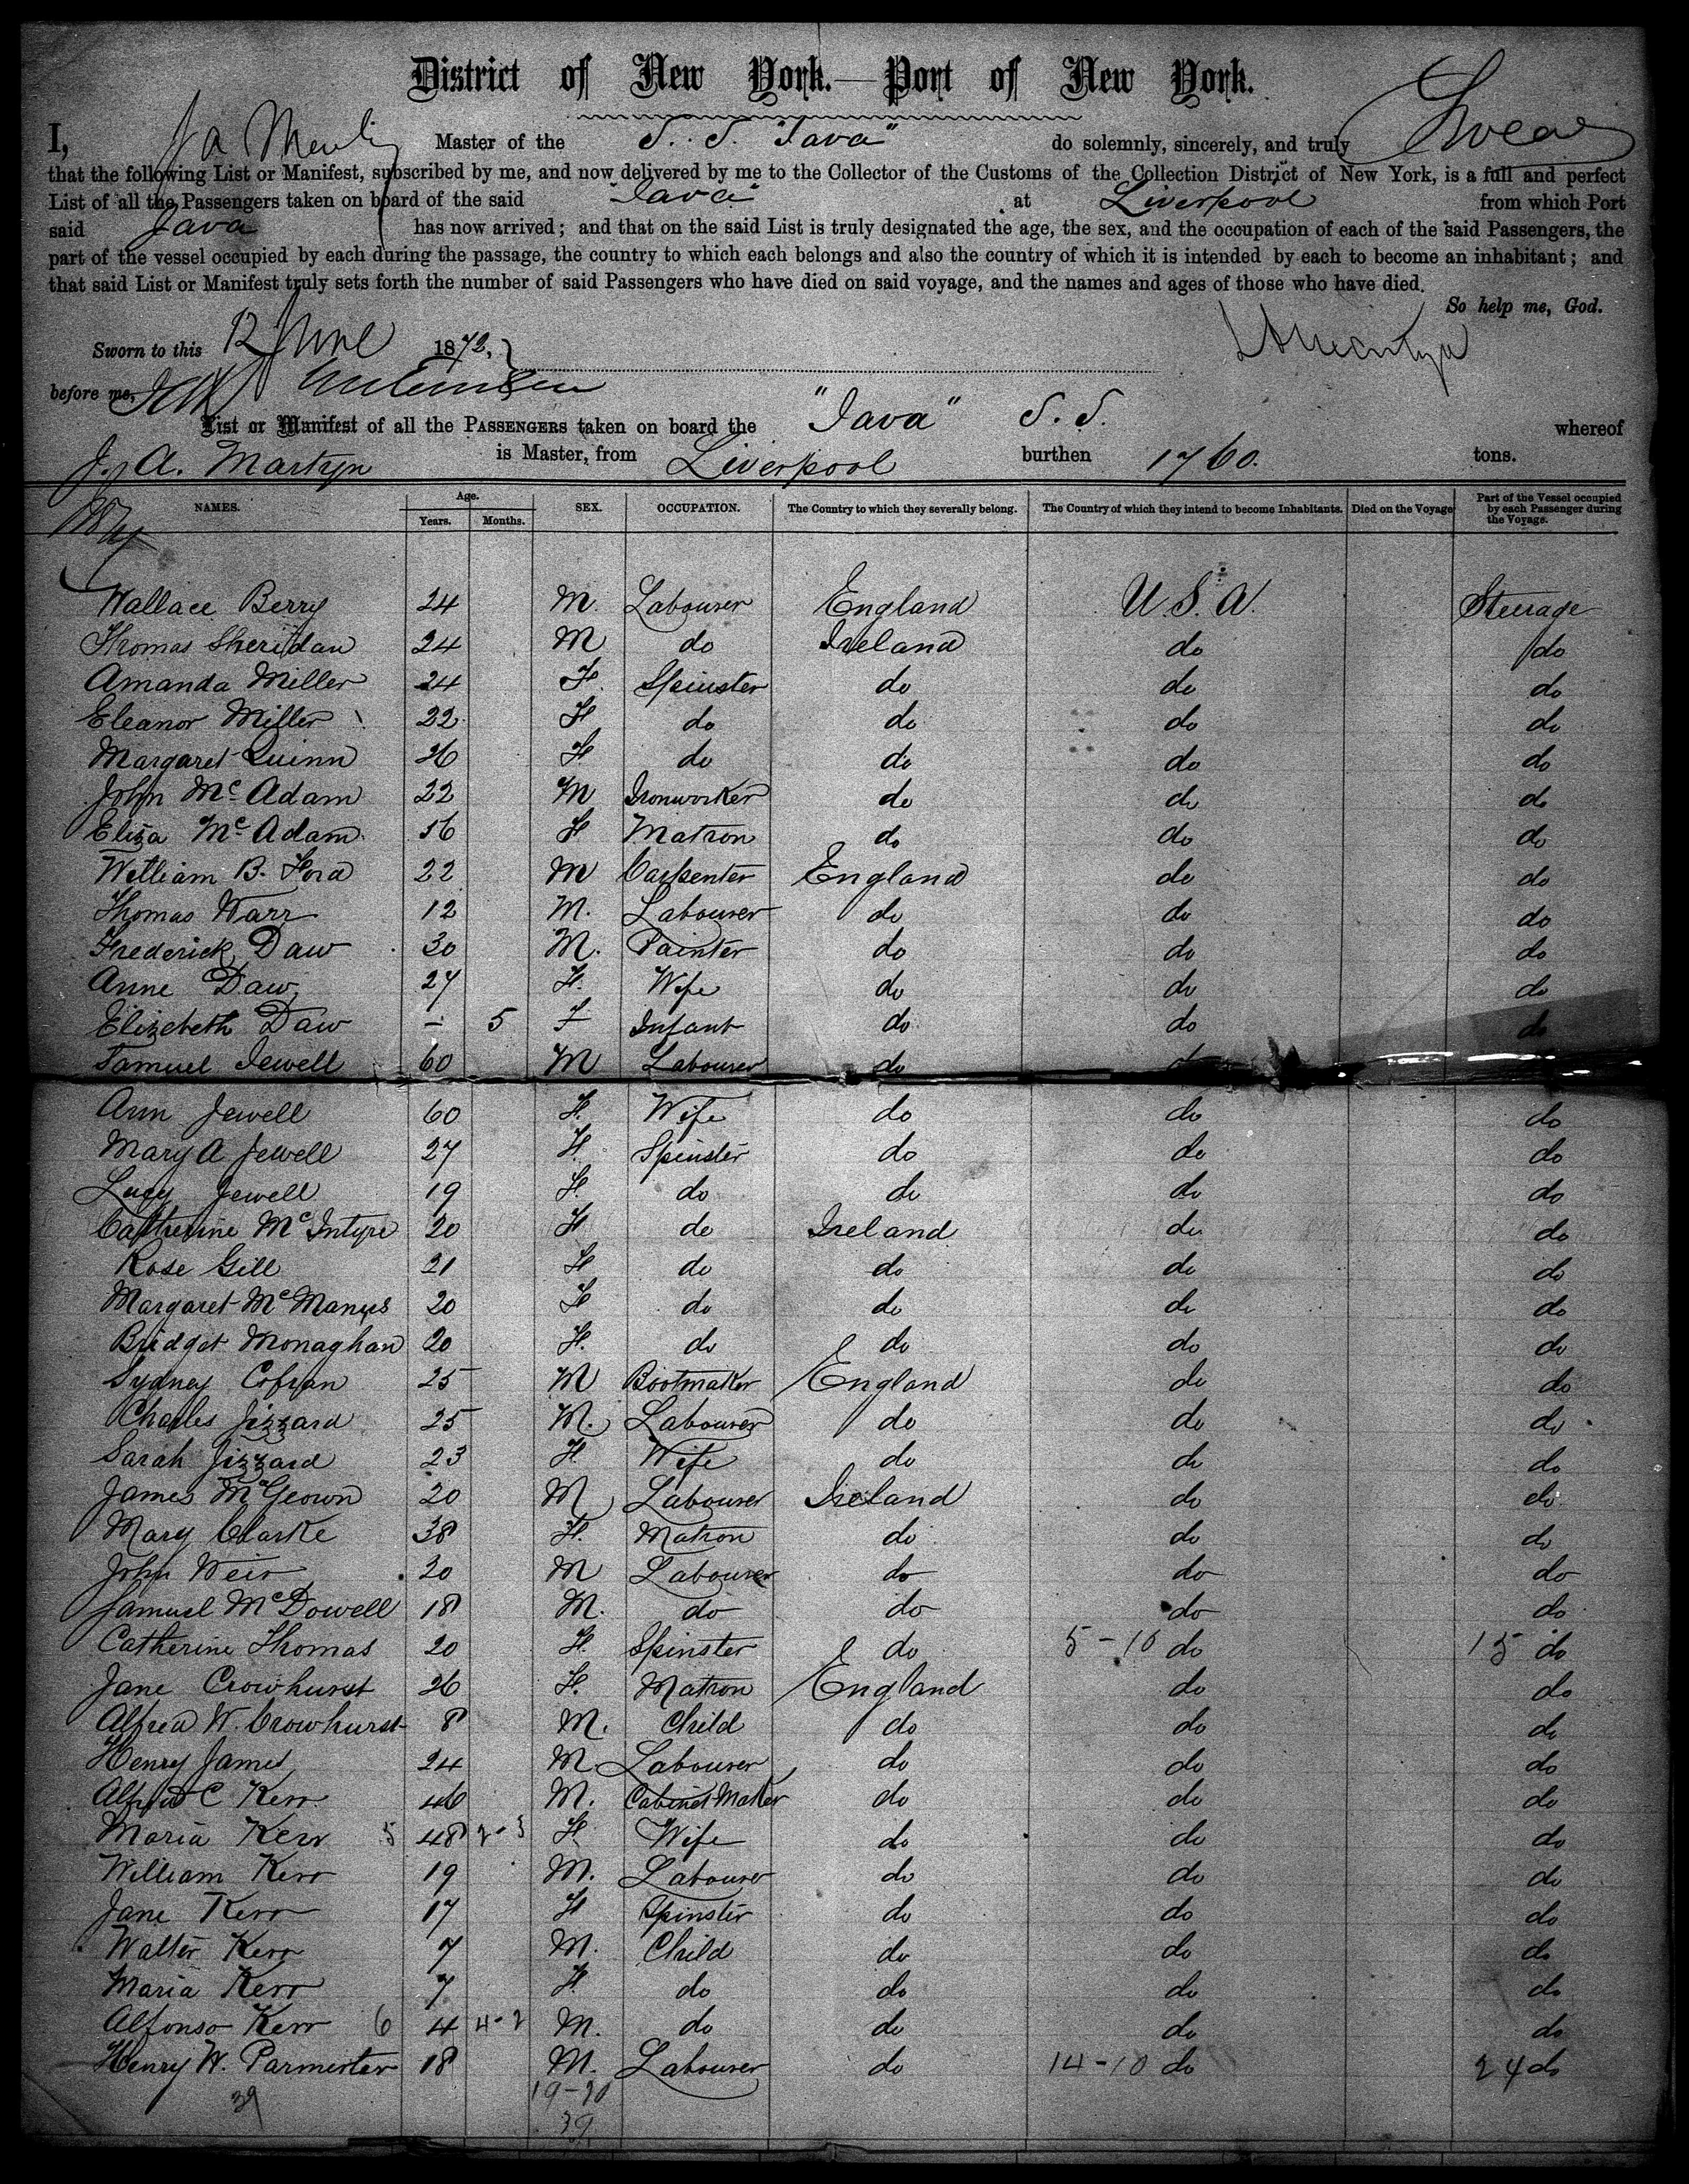 District of New York.—Port of New York.
I, J A Martyn Master of the S. S. "Java" do solemnly, sincerely, and truly Swear
that the following List or Manifest, subscribed by me, and now delivered by me to the Collector of the Customs of the Collection District of New York, is a full and perfect
List of all the Passengers taken on board of the said "Java" at Liverpool from which Port
said Java has now arrived; and that on the said List is truly designated the age, the sex, and the occupation of each of the said Passengers, the
part of the vessel occupied by each during the passage, the country to which each belongs and also the country of which it is intended by each to become an inhabitant; and
that said List or Manifest truly sets forth the number of said Passengers who have died on said voyage, and the names and ages of those who have died.
So help me, God.
Sworn to this 12 June 1872,
before me,
List or Manifest of all the PASSENGERS taken on board the "Java" S. S. whereof
J. A. Martyn is Master, from Liverpool burthen 1760. tons.
NAMES. Age. Years. Months. SEX. OCCUPATION. The Country to which they severally belong. The Country of which they intend to become Inhabitants. Died on the Voyage Part of the Vessel occupied by each Passenger during the Voyage.
Wallace Berry 24 M. Labourer England U.S.A. Steerage
Thomas Sheridan 24 M do Ireland do do
Amanda Miller 24 F. Spinster do do do
Eleanor Miller 22 F do do do do
Margaret Quinn 26 F do do do do
John McAdam 22 M Ironworker do do do
Eliza McAdam 16 F Matron do do do
William B. Ford 22 M Carpenter England do do
Thomas Warr 12 M. Labourer do do do
Frederick Daw 30 M. Painter do do do
Anne Daw 27 F. Wife do do do
Elizebeth Daw – 5 F Infant do do do
Samuel Jewell 60 M Labourer do do
Ann Jewell 60 F. Wife do do do
Mary A Jewell 27 F. Spinster do do do
Lucy Jewell 19 F. do do do do
Catherine McIntyre 20 F do Ireland do do
Rose Gill 21 F do do do do
Margaret McManus 20 F do do do do
Bridget Monaghan 20 F. do do do do
Sydney 25 M Bootmaker England do do
Charles Jizzard 25 M. Labourer do do do
Sarah Jizzard 23 F Wife do do do
James McGeown 20 M Labourer Ireland do do
Mary Clarke 38 F. Matron do do do
John Weir 20 M Labourer do do do
Samuel McDowell 18 M. do do do do
Catherine Thomas 20 F. Spinster do 5-10 do 15 do
Jane Crowhurst 26 F. Matron England do do
Alfred W. Crowhurst 8 M. Child do do do
Henry James 24 M Labourer do do do
Alfred C Kerr 46 M. Cabinet Maker do do do
Maria Kerr 5 48 2-3 F Wife do do do
William Kerr 19 M. Labourer do do do
Jane Kerr 17 F Spinster do do do
Walter Kerr 7 M. Child do do do
Maria Kerr 7 F. do do do do
Alfonso Kerr 6 4 4-2 M. do do do do
Henry W. Parmenter 18 M. Labourer do 14-10 do 24 do
39 19-20
39